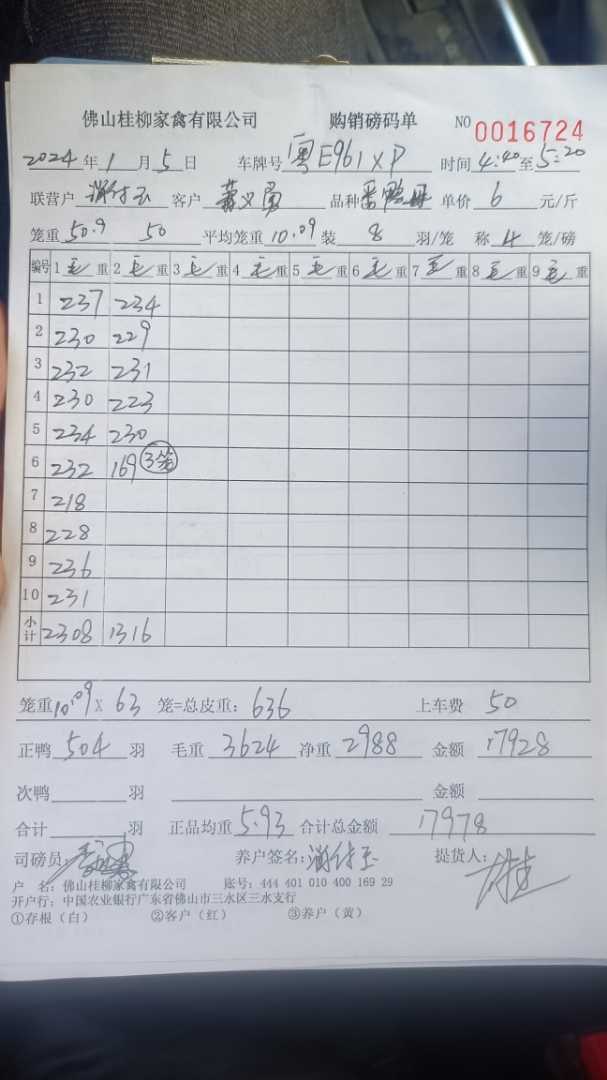 佛山桂柳家禽有限公司 购销磅码单 NO 0016724
2024年1月5日 车牌号 粤E961XP 时间4:40至5:20
联营户 客户 品种 单价 6 元/斤
笼重50.9 50 平均笼重10.09装 8 羽/笼 称4笼/磅
编号 1毛重 2毛重 3毛重 4毛重 5毛重 6毛重 7毛重 8毛重 9毛重
1 237 234
2 230 229
3 232 231
4 230 223
5 234 230
6 232 169 3笼
7 218
8 228
9 236
10 231
小计 2308 1316
笼重10.09X 63 笼=总皮重: 636 上车费 50
正鸭504羽 毛重3624净重2988 金额17928
次鸭 羽 金额
合计 羽 正品均重5.93合计总金额 17978
司磅员: 养户签名: 提货人:
户 名: 佛山桂柳家禽有限公司 账号: 444 401 010 400 169 29
开户行: 中国农业银行广东省佛山市三水区三水支行
①存根（白） ②客户（红） ③养户（黄）